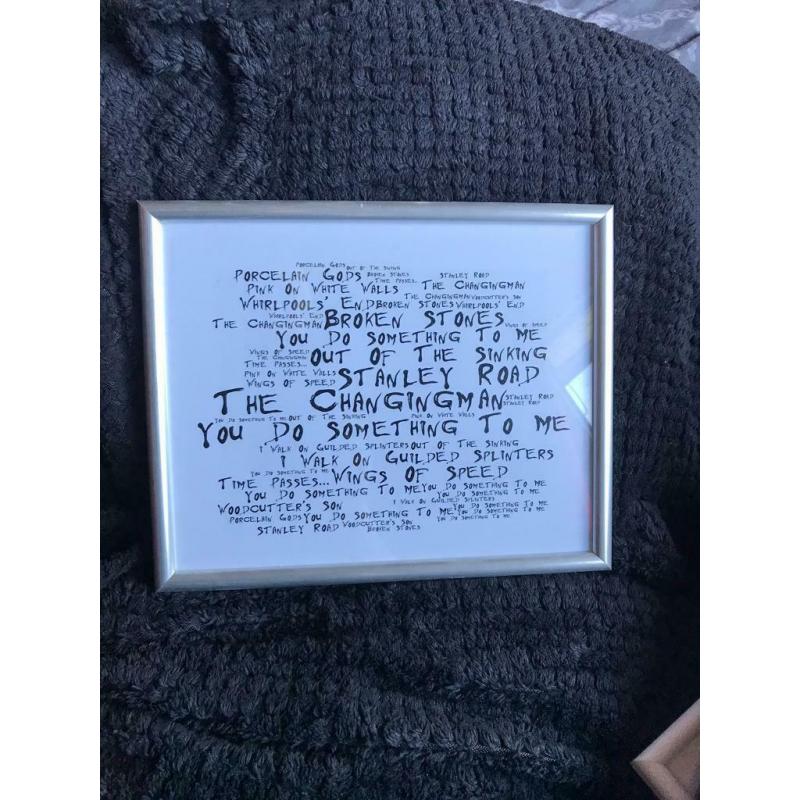 PORCELAIN GODS OUT OF THE SINKING
PORCELAIN GODS BROKEN STONES TIME PASSES... STANLEY ROAD
PINK ON WHITE WALLS THE CHANGINGMAN
THE CHANGINGMAN WOODCUTTER'S SON
WHIRLPOOLS' END BROKEN STONES WHIRLPOOLS' END
WHIRLPOOLS' END
THE CHANGINGMAN BROKEN STONES WINGS OF SPEED
YOU DO SOMETHING TO ME
WINGS OF SPEED OUT OF THE SINKING
THE CHANGINGMAN
TIME PASSES...
PINK ON WHITE WALLS STANLEY ROAD
WINGS OF SPEED
THE CHANGINGMAN STANLEY ROAD
STANLEY ROAD
YOU DO SOMETHING TO ME OUT OF THE SINKING PINK ON WHITE WALLS
YOU DO SOMETHING TO ME
I WALK ON GUILDED SPLINTERS OUT OF THE SINKING
I WALK ON GUILDED SPLINTERS
YOU DO SOMETHING TO ME
TIME PASSES... WINGS OF SPEED
YOU DO SOMETHING TO ME YOU DO SOMETHING TO ME
YOU DO SOMETHING TO ME
I WALK ON GUILDED SPLINTERS
WOODCUTTER'S SON YOU DO SOMETHING TO ME
PORCELAIN GODS YOU DO SOMETHING TO ME YOU DO SOMETHING TO ME
YOU DO SOMETHING TO ME
STANLEY ROAD WOODCUTTER'S SON
BROKEN STONES